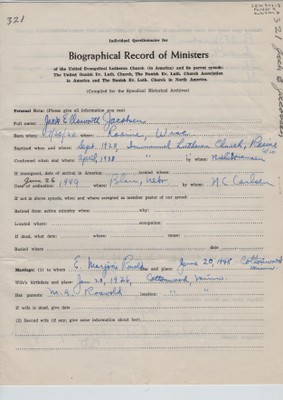 321
Individual Questionnaire for
Biographical Record of Ministers
of the United Evangelical Lutheran Church (in America) and its parent synods:
The United Danish Ev. Luth. Church, The Danish Ev. Luth. Church Association
in America and The Danish Ev. Luth. Church in North America.
(Compiled for the Synodical Historical Archives)
Personal Note: (Please give all information you can)
Full name: Jack Ellsworth Jacobsen
Born when: where: Racine, Wisc.
Baptized when and where: Sept. 1923, Immanuel Lutheran Church, Racine
Confirmed when and where: April, 1938 " by whom:
If immigrant, date of arrival in America: located where:
June 26
Date of ordination: 1949 where: Blair, Nebr by whom: N.C. Carlsen
If not in above synods, when and where accepted as member pastor of our synod:
Retired from active ministry when: why:
Located where: occupation:
If dead, what date: where: cause:
Buried where date
Marriage: (1) to whom: E. Marjorie date and place: June 20, 1948 Cottonwood
Minn.
Wife's birthdate and place: Jan 20, 1926, Cottonwood, Minn.
Her parents: M.A. Rosvold location: " "
If wife is dead, give date
(2) Second wife (if any; give same information about her)